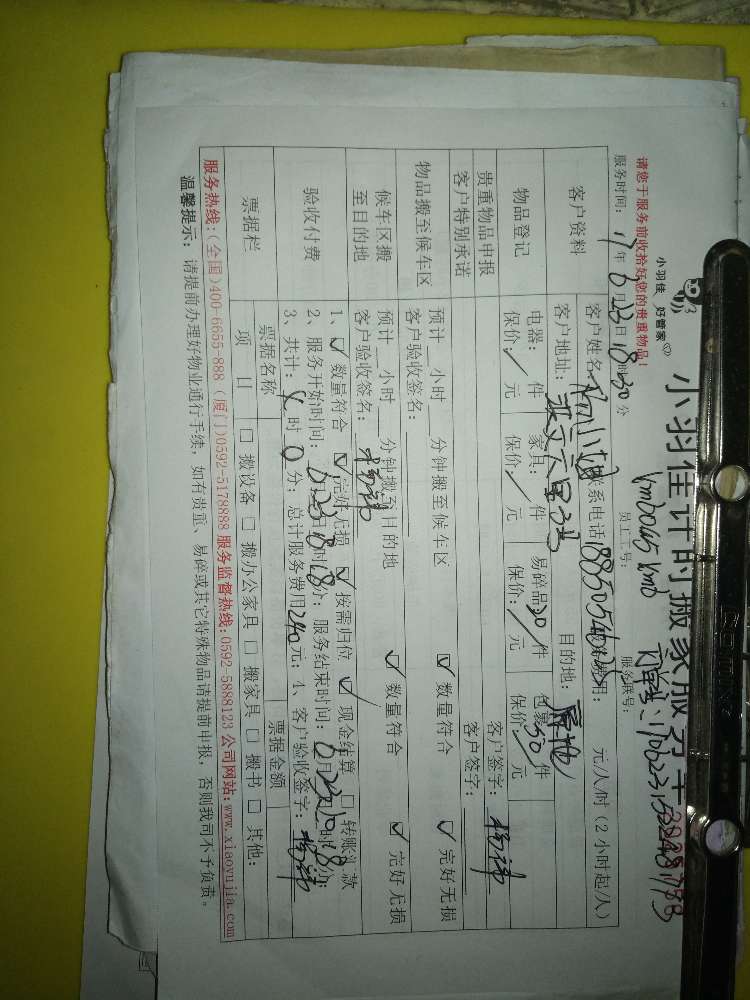 小羽佳 好管家
小羽佳计时搬家服务单
请您于服务前收拾好您的贵重物品!
员工工号:
服务账号:
服务时间: 17年6月23日18时30分
客户资料
客户姓名:
联系电话
费用: 元/人/时(2小时起/人)
客户地址:
目的地: 原地
物品登记
电器: / 件 家具: 件 易碎品30件 包裹50件
保价: / 元 保价: / 元 保价: / 元 保价: / 元
贵重物品申报
客户签字:
客户特别承诺
客户签字:
物品搬至候车区
预计 小时 分钟搬至候车区 ☑ 数量符合 ☑ 完好无损
客户验收签名:
候车区搬至目的地
预计 小时 分钟搬至目的地 ☑ 数量符合 ☑ 完好无损
客户验收签名:
验收付费
1、☑ 数量符合 ☑ 完好无损 ☑ 按需归位 ☑ 现金结算 □ 转账汇款
2、服务开始时间: 分; 服务结束时间: 分;
3、共计: 时 0 分; 总计服务费用240元; 4、客户验收签字:
票据栏
票据名称 票据金额
项 目 □ 搬设备 □ 搬办公家具 □ 搬家具 □ 搬书 □ 其他:
服务热线:(全国)400-6655-888 (厦门)0592-5178888 服务监督热线:0592-5888123 公司网站:www.xiaoyujia.com
温馨提示: 请提前办理好物业通行手续, 如有贵重、易碎或其它特殊物品请提前申报, 否则我司不予负责。